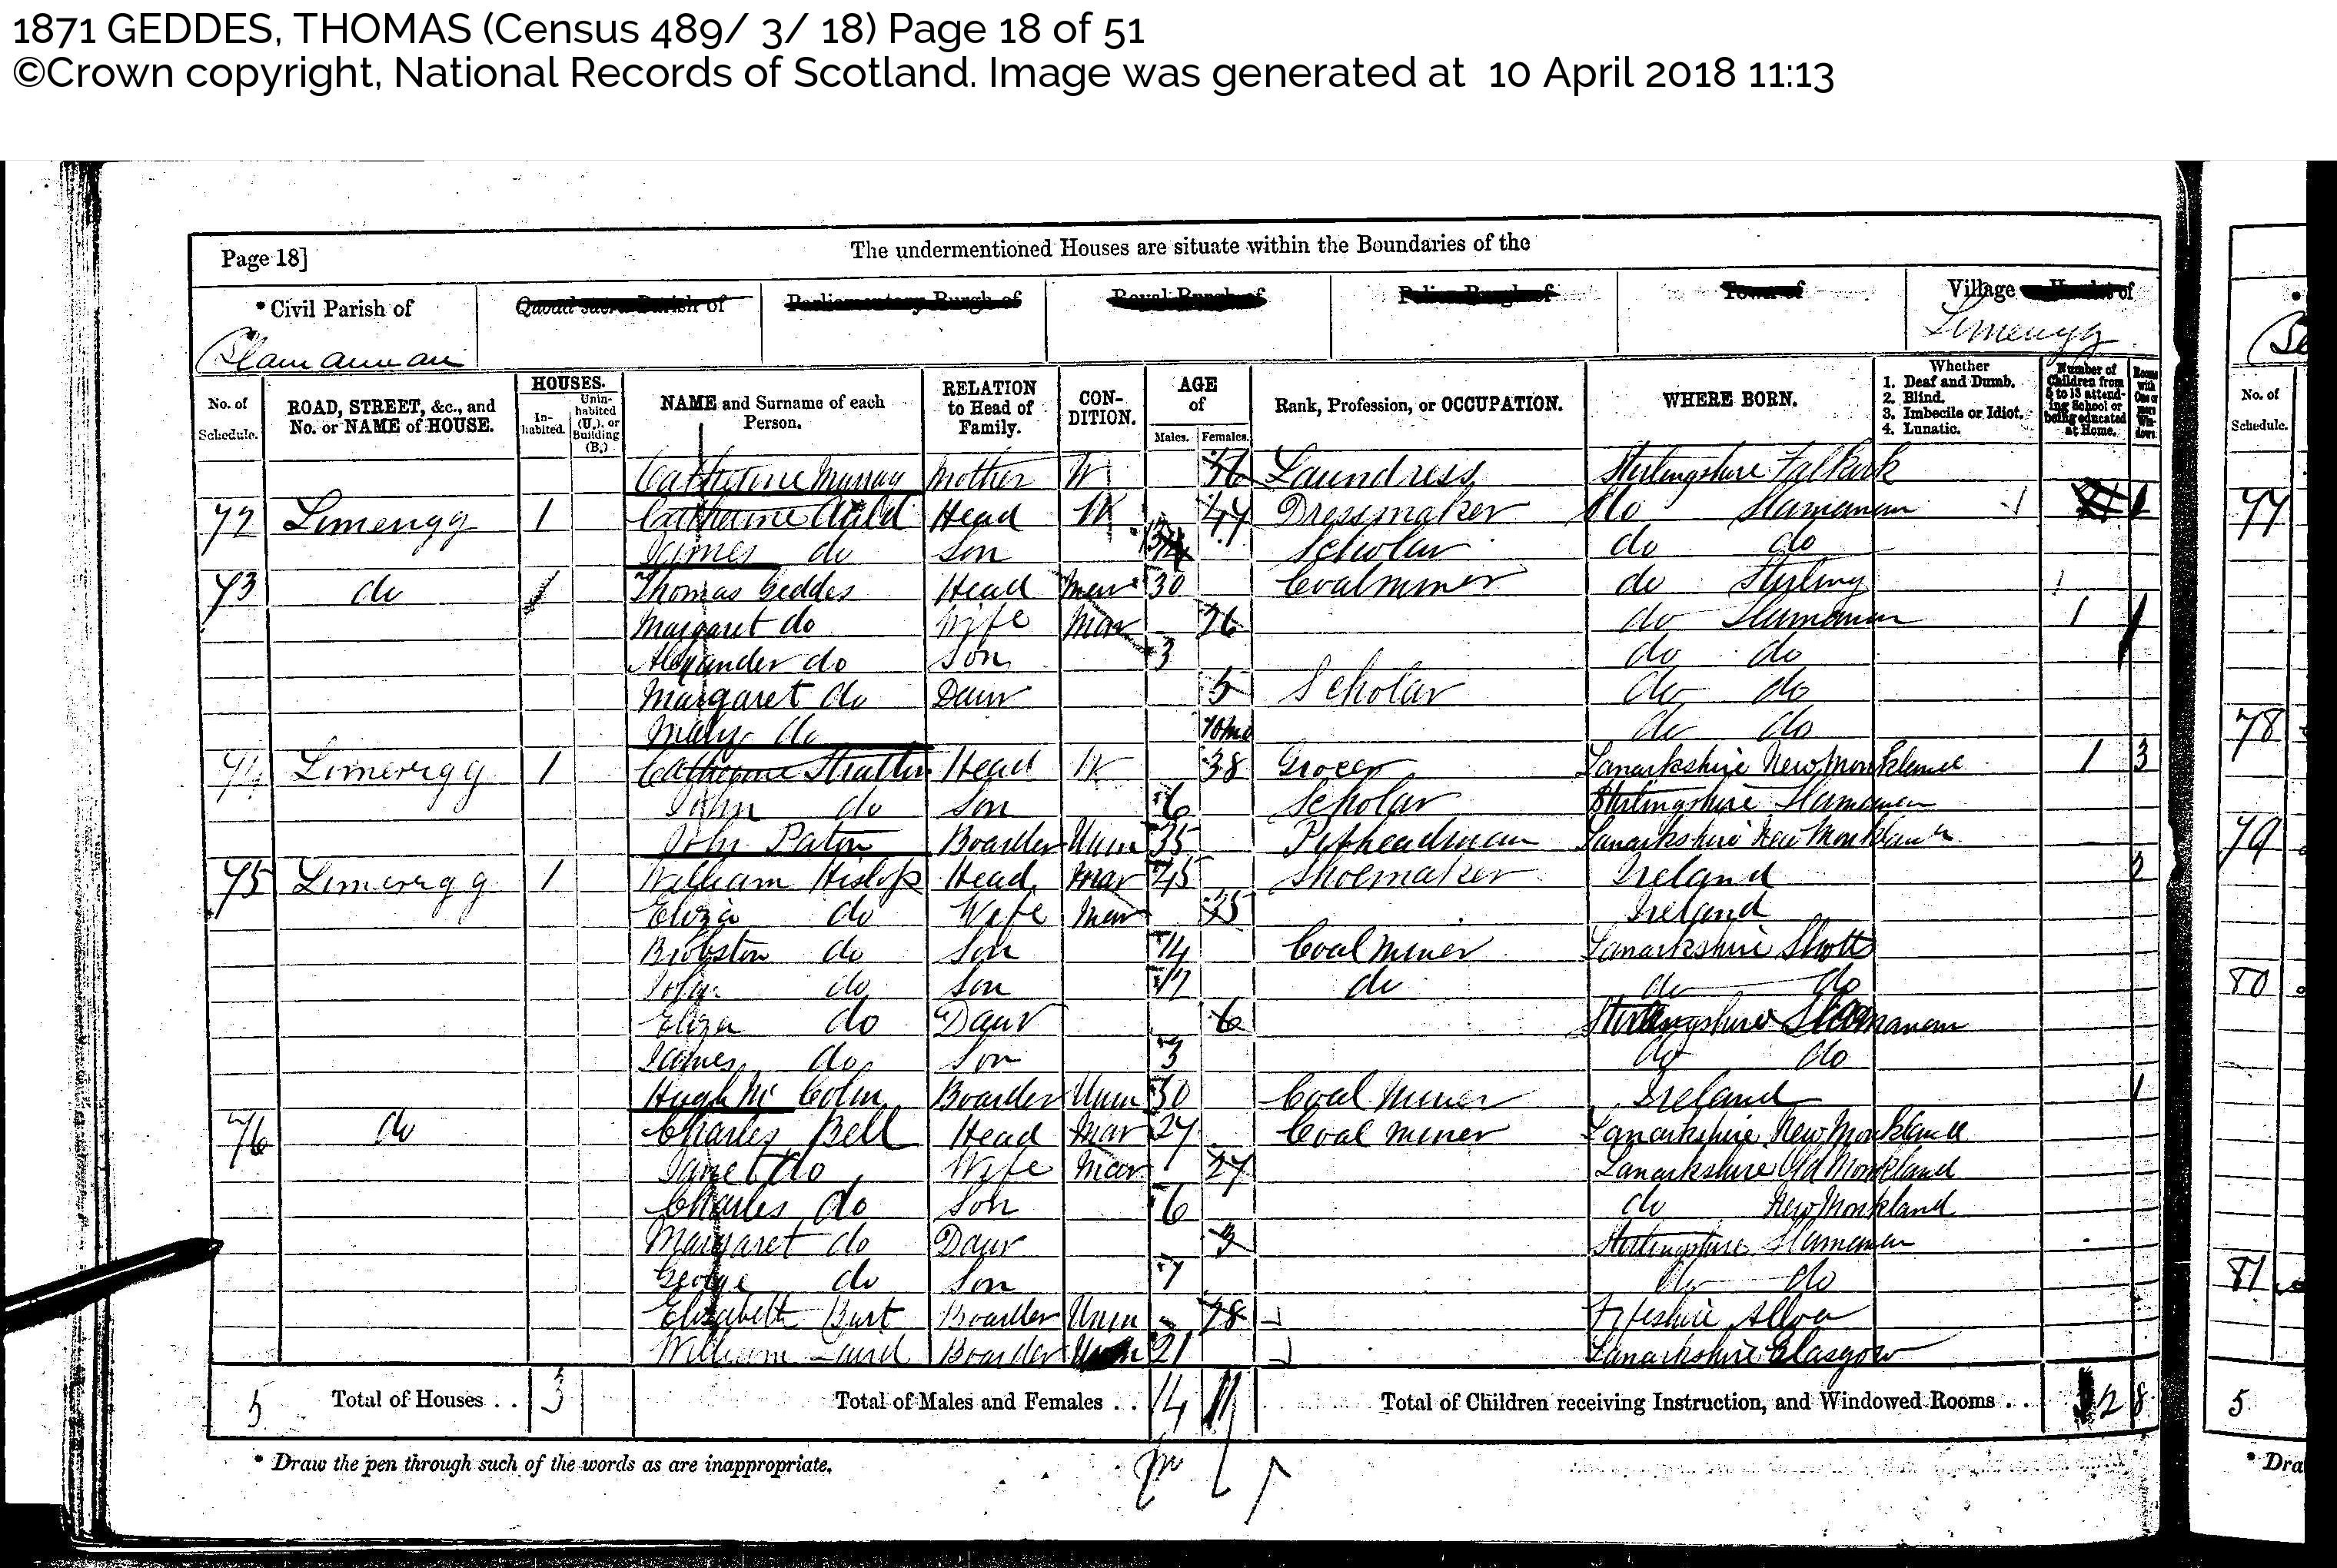 1871 GEDDES, THOMAS (Census 489/ 3/ 18) Page 18 of 51
©Crown copyright, National Records of Scotland. Image was generated at 10 April 2018 11:13
Page 18] The undermentioned Houses are situate within the Boundaries of the
* Civil Parish of Quoad sacra Parish of Parliamentary Burgh of Royal Burgh of Police Burgh of Town of Village of
Slamannan Limerigg
No. of Schedule. ROAD, STREET, &c., and No. or NAME of HOUSE. HOUSES. Inhabited. Uninhabited (U.), or Building (B.) NAME and Surname of each Person. RELATION to Head of Family. CONDITION. AGE of Males. Females. Rank, Profession, or OCCUPATION. WHERE BORN. Whether 1. Deaf and Dumb. 2. Blind. 3. Imbecile or Idiot. 4. Lunatic. Number of Children from 5 to 13 attending School or being educated at Home. Rooms with One or more Windows.
Catherine Murray Mother W Laundress Stirlingshire Falkirk
72 Limerigg 1 Catherine Auld Head W 47 Dressmaker do Slamanan 1
James do Son Scholar do do
73 do 1 Thomas Geddes Head Mar 30 Coalminer do Stirling
Margaret do Wife Mar 26 do Slamanan 1 1
Alexander do Son 3 do do
Margaret do Daur 5 Scholar do do
Mary do 10mo do do
74 Limerigg 1 Catherine Head W 38 Grocer Lanarkshire New Monkland 1 3
John do Son 6 Scholar Stirlingshire Slamanan
John Paton Boarder Unm 35 Pitheadman Lanarkshire New Monkland
75 Limerigg 1 William Hislop Head Mar 45 Shoemaker Ireland 2
Eliza do Wife Mar 35 Ireland
do Son 14 Coal Miner Lanarkshire Shotts
John do Son 12 do do do
Eliza do Daur 6 Stirlingshire Slamanan
James do Son 3 do do
Hugh Mc Colm Boarder Unm 30 Coal Miner Ireland 1
76 do Charles Bell Head Mar 27 Coal Miner Lanarkshire New Monkland
Janet do Wife Mar 27 Lanarkshire Old Monkland
Charles do Son 6 do New Monkland
Margaret do Daur 3 Stirlingshire Slamanan
George do Son do do
Elizabeth Burt Boarder Unm 28 Fifeshire Alloa
William Laird Boarder Unm 21 Lanarkshire Glasgow
5 Total of Houses . . 3 Total of Males and Females . . 14 11 Total of Children receiving Instruction, and Windowed Rooms . . 2 8
* Draw the pen through such of the words as are inappropriate.
No. of Schedule.
77
78
79
80
81
5
* Dra